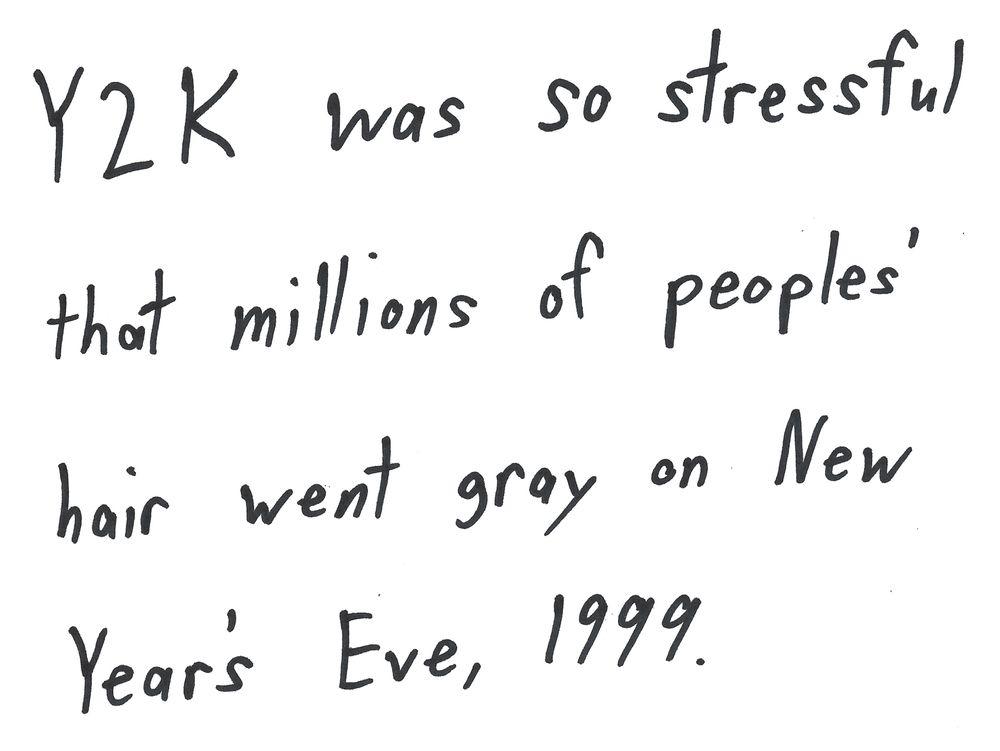 Y2K was so stressful
that millions of peoples'
hair went gray on New
Year's Eve, 1999.